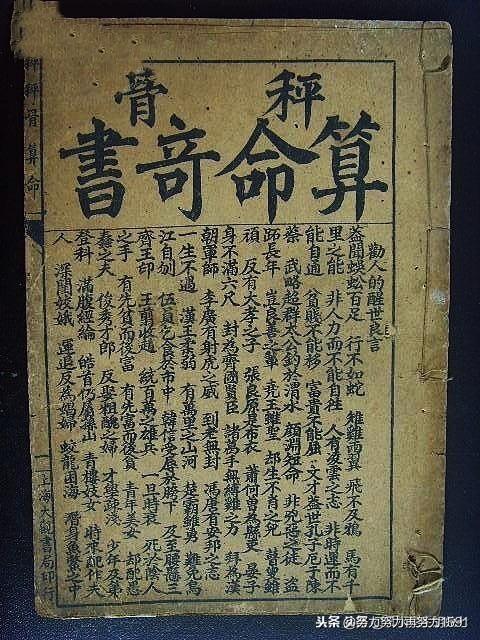 秤骨
算命竒書
勸人的醒世良言
益聞蜈蚣百足 行不如蛇 雉雞両翼 飛不及鴉 馬有千
里之能 非人力而不能自往 人有凌雲之志 非時運而不
能自通 貧賤不能移 富貴不能屈 文才盖世孔子厄于陳
蔡 武略超群太公釣於渭水 顔淵短命 非兇惡之徒 盜
跖長年 豈良善之輩 堯王雖聖 却生不肖之兒 瞽叟雖
頑 反有大孝之子 張良原是布衣 蕭何曾為縣吏 晏子
身不滿六尺 封為齊國賢臣 諸葛手無縛雞之力 拜為漢
朝軍師 李廣有射虎之威 到老無封 馮唐有安邦之志
一生不遇 漢王柔弱 有萬里之山河 楚霸雖勇 難免烏
江自刎 伍員乞食於市中 韓信受辱於胯下 及至腰懸三
齊王印 王翦收趙 統百萬之雄兵 一旦時衰 死於陰人
之手 有先貧而後富 有先富而後貧 青年美女 却配愚
蠢之夫 俊秀才郎 反娶粗醜之婦 才學淺 少年及第
登科 滿腹經綸 皓首仍屬孫山 青樓妓女 時來配作夫
人 深閨嫦娥 運退反為娼婦 蛟龍困海 潛身魚鱉之中
秤骨算命
上海大觀書局印行
头条号/努力努力再努力1591